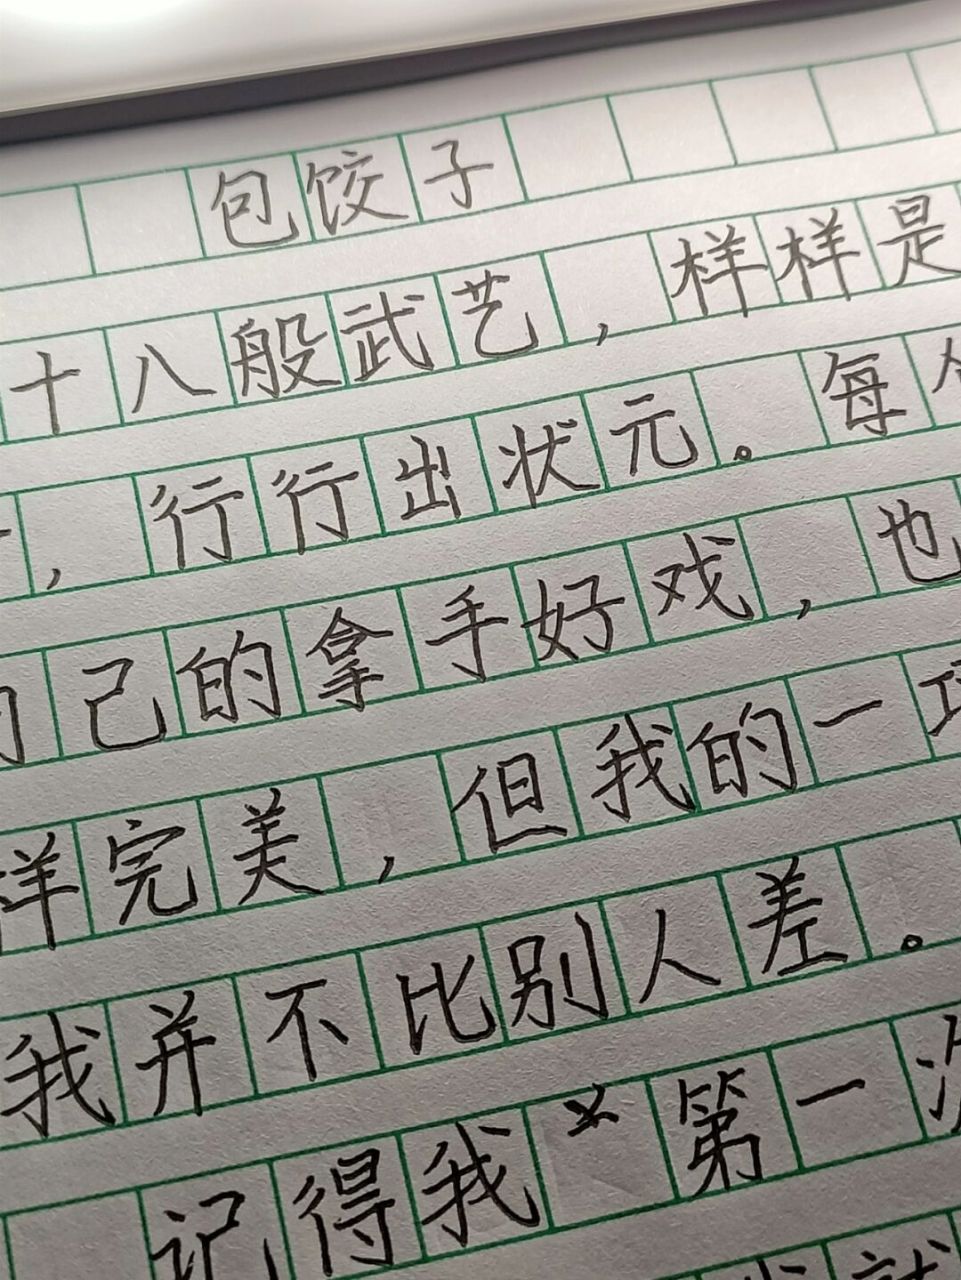 包饺子
十八般武艺，样样是
，行行出状元。每
自己的拿手好戏，也
样完美，但我的一项
我并不比别人差。
记得我第一次